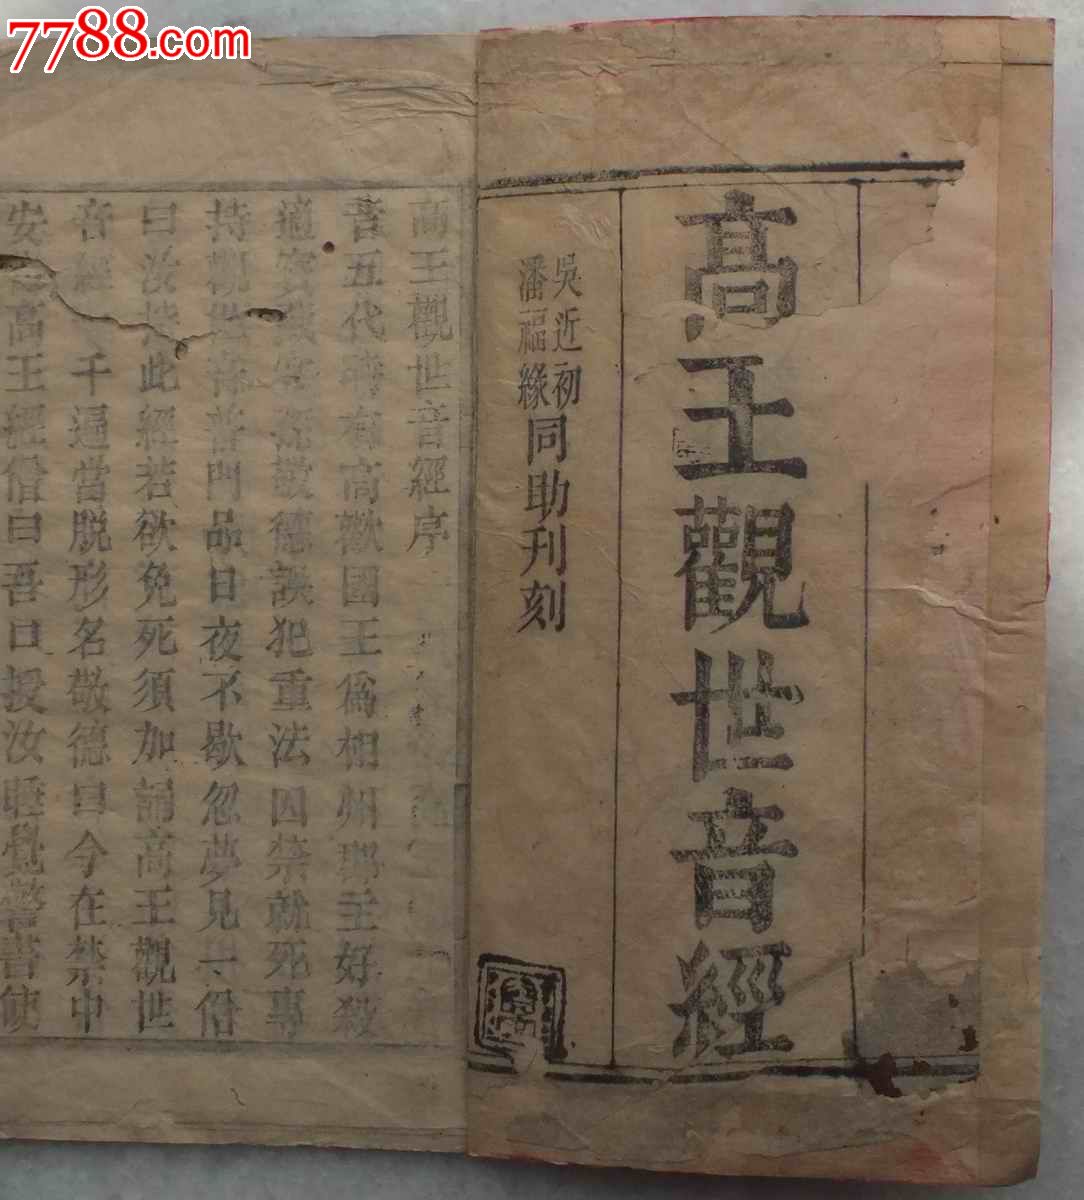 7788.com
高王觀世音經
吳近初
潘福緣
同助刊刻
高王觀世音經序
昔五代時有高歡國王為相州郡主好殺
適寳藏官孫敬德誤犯重法囚禁就死專
持觀世音普門品日夜不歇忽夢見一僧
曰汝持此經若欲免死須加誦高王觀世
音經千遍當脱形名敬德曰今在禁中
安高王經僧曰吾口授汝睡覺書使